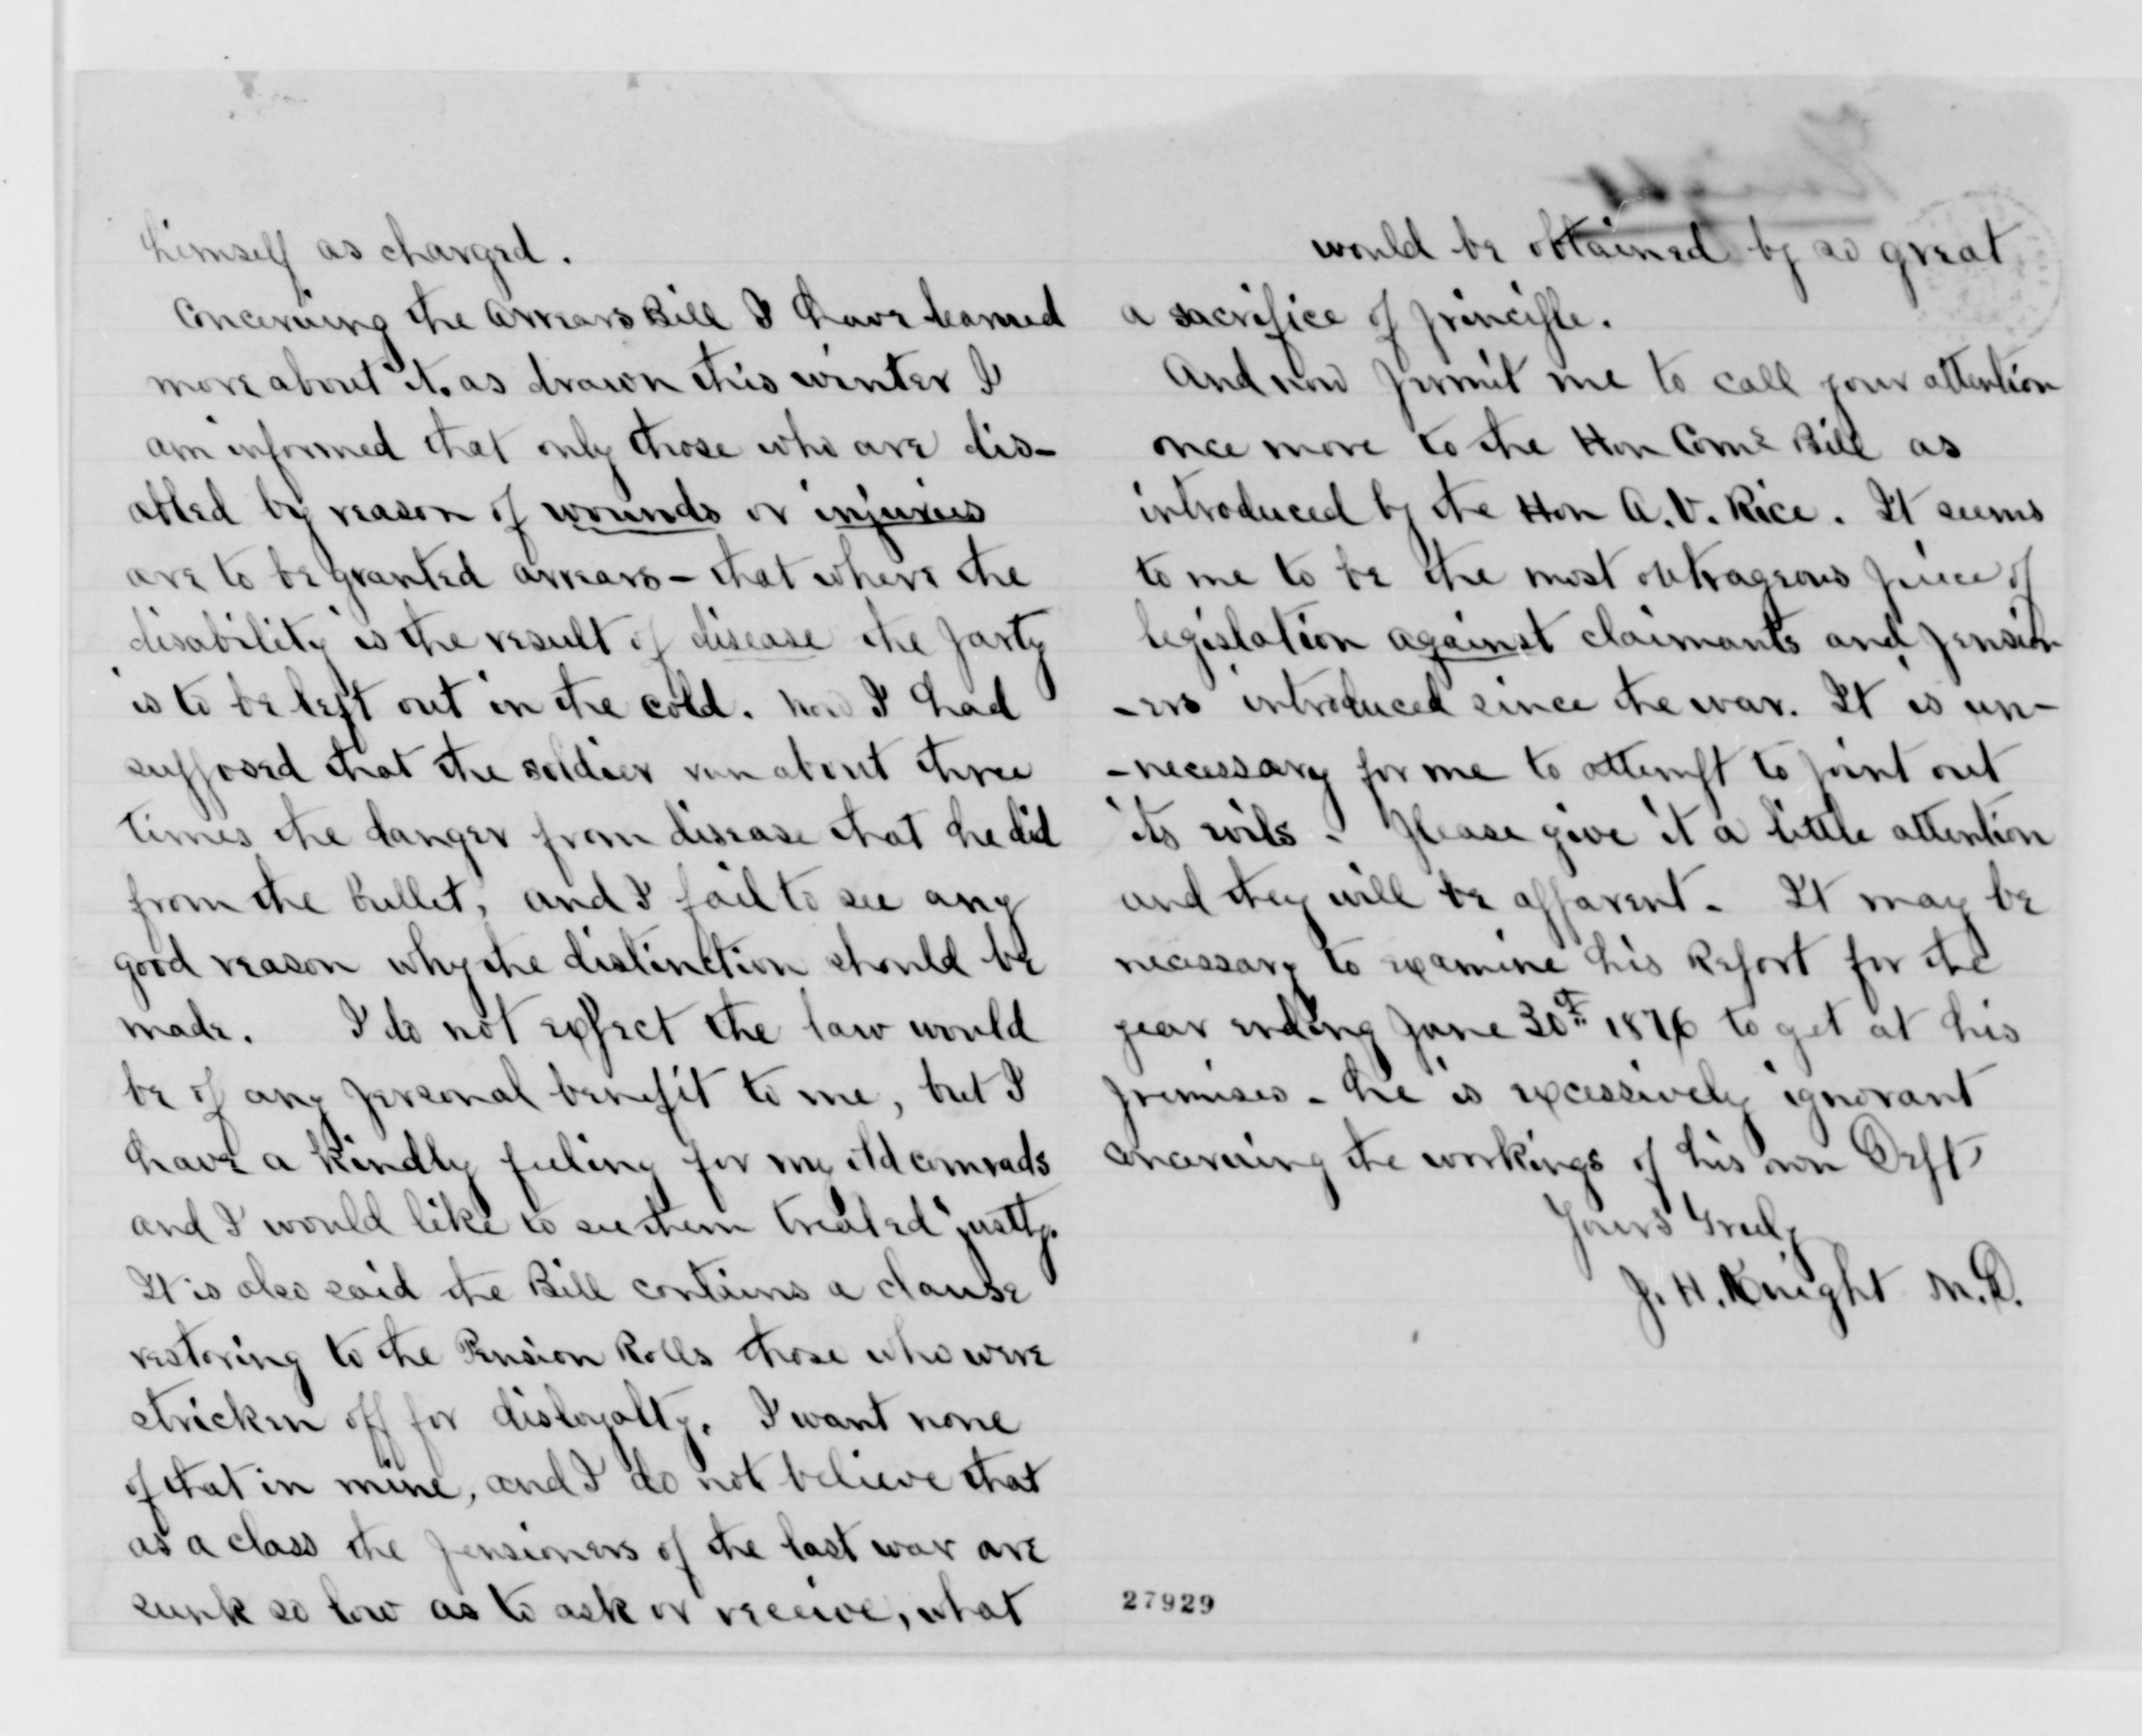 himself as charged.
Concerning the Arrears Bill I have learned
more about it. as drawn this winter I
am informed that only those who are dis-
abled by reason of wounds or injuries
are to be granted arrears - that where the
disability is the result of disease the party
is to be left out in the cold. Now I had
supposed that the soldier run about three
times the danger from disease that he did
from the bullet, and I fail to see any
good reason why the distinction should be
made. I do not expect the law would
be of any personal benefit to me, but I
have a kindly feeling for my old comrads
and I would like to see them treated justly.
It is also said the Bill contains a clause
restoring to the Pension Rolls those who were
stricken off for disloyalty. I want none
of that in mine, and I do not believe that
as a class the pensioners of the last war are
sunk so low as to ask or receive, what
would be obtained by so great
a sacrifice of principle.
And now permit me to call your attention
once more to the Hon Comr Bill as
introduced by the Hon A. V. Rice. It seems
to me to be the most outrageous piece of
legislation against claimants and pension
-ers introduced since the war. It is un-
-necessary for me to attempt to point out
its evils - Please give it a little attention
and they will be apparent - It may be
necessary to examine his Report for the
year ending June 30th 1876 to get at his
premises - he is excessively ignorant
concerning the workings of his own Dept,
Yours Truly
J. H. Knight M.D.
27929